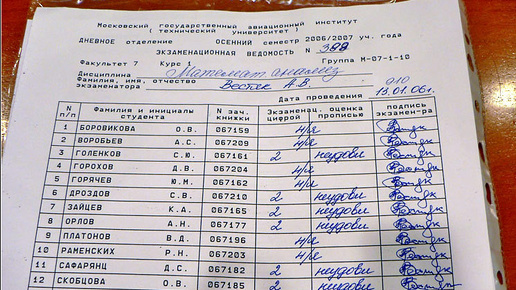 Московский государственный авиационный институт
( технический университет )
ДНЕВНОЕ отделение ОСЕННИЙ семестр 2006/2007 уч. года
ЭКЗАМЕНАЦИОННАЯ ВЕДОМОСТЬ N 388
Факультет 7 Курс 1 Группа М-07-1-10
Дисциплина Математ. анализ
Фамилия, имя, отчество экзаменатора Вестяк А.В. 010
Дата проведения 13.01.06г.
N п/п Фамилия и инициалы студента N зач. книжки Экзаменац. оценка цифрой прописью подпись экзамен-ра
1 БОРОВИКОВА О.В. 067159 н/я Вестяк
2 ВОРОБЬЕВ А.С. 067209 н/я Вестяк
3 ГОЛЕНКОВ С.Ю. 067161 2 неудовл Вестяк
4 ГОРОХОВ Д.В. 067204 н/я Вестяк
5 ГОРЯЧЕВ Ю.М. 067162 н/я Вестяк
6 ДРОЗДОВ С.В. 067210 2 неудовл Вестяк
7 ЗАЙЦЕВ К.А. 067165 2 неудовл Вестяк
8 ОРЛОВ А.Н. 067177 2 неудовл Вестяк
9 ПЛАТОНОВ В.Д. 067196 н/я Вестяк
10 РАМЕНСКИХ Р.Н. 067203 н/я Вестяк
11 САФАРЯНЦ Д.С. 067182 2 неудовл Вестяк
12 СКОБЦОВА О.В. 067185 2 неудовл Вестяк